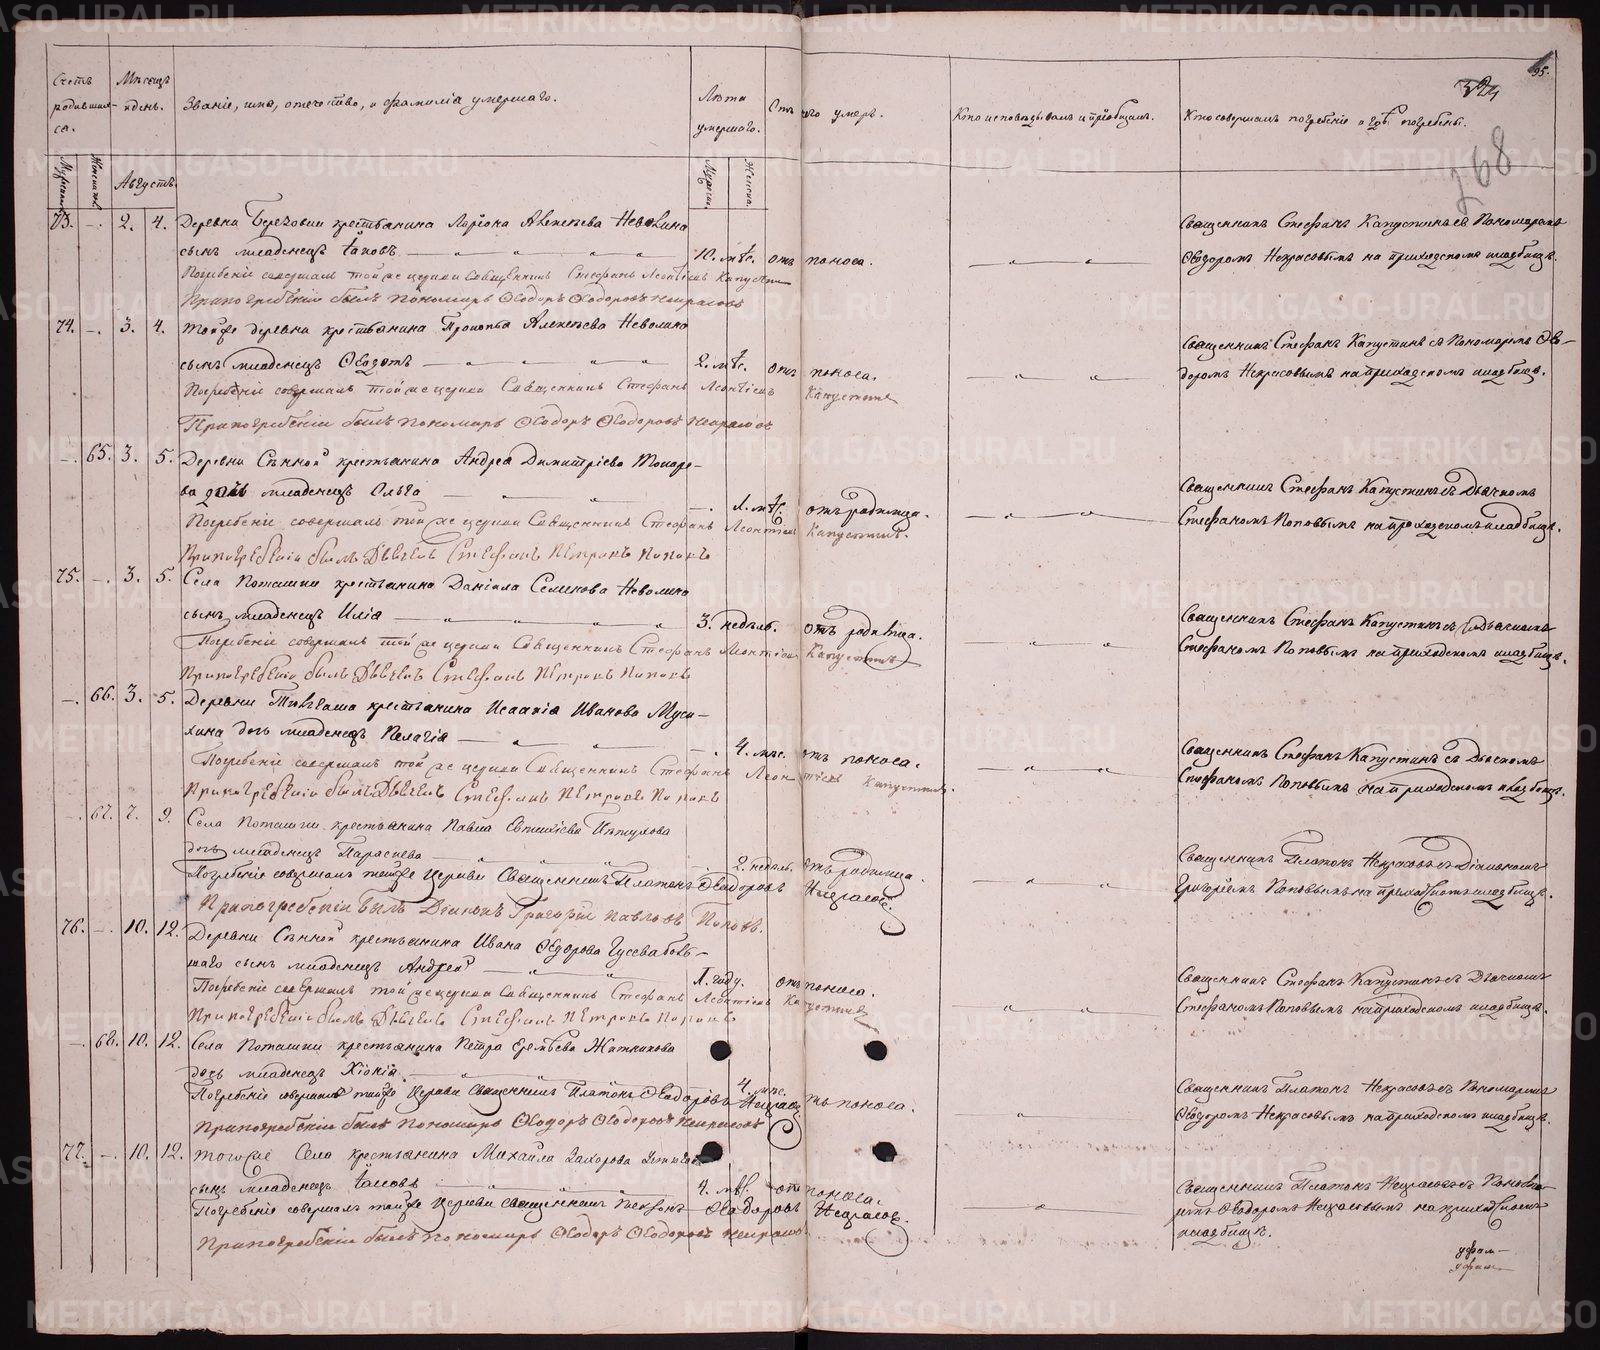 95.
324
268
Счетъ родившихся. Мѣсяцъ и день. Званіе, имя, отечество, и фамилія умершаго. Лѣта умершаго. Отъ чего умеръ. Кто исповѣдывалъ и пріобщалъ. Кто совершалъ погребеніе и гдѣ погребены.
Мужеска. Женска. Августъ. Мужеска. Женска.
73. – 2. 4. Деревни Березовки крестьянина Ларіона Алексѣева Неволина
сынъ младенецъ Іаковъ 10. мѣс. отъ поноса.
Священникъ Стефанъ Капустинъ съ Пономаремъ
Ѳеодоромъ Некрасовымъ на приходскомъ кладбищѣ.
Погребеніе совершалъ той же церкви Священникъ Стефанъ Леонтіевъ Капустинъ
При погребеніи былъ Пономарь Ѳеодоръ Ѳеодоровъ Некрасовъ
74. – 3. 4. Той же деревни крестьянина Прокопья Алексѣева Неволина
сынъ младенецъ Ѳеодотъ 2. мѣс. отъ поноса.
Священникъ Стефанъ Капустинъ съ Пономаремъ Ѳео-
доромъ Некрасовымъ на приходскомъ кладбищѣ.
Погребеніе совершалъ той же церкви Священникъ Стефанъ Леонтіевъ Капустинъ
При погребеніи былъ Пономарь Ѳеодоръ Ѳеодоровъ Некрасовъ
– 65. 3. 5. Деревни Сѣнной крестьянина Андрея Димитріева Токаре-
ва дочь младенецъ Ольга 1. мѣс. отъ родимца.
Священникъ Стефанъ Капустинъ съ Дьячкомъ
Стефаномъ Поповымъ на приходскомъ кладбищѣ.
Погребеніе совершалъ той же церкви Священникъ Стефанъ Леонтіевъ Капустинъ.
При погребеніи былъ Дьячекъ Стефанъ Петровъ Поповъ
75. – 3. 5. Села Поташки крестьянина Даніила Семенова Неволина
сынъ младенецъ Илія 3. недѣль. отъ родимца.
Священникъ Стефанъ Капустинъ съ Дьячкомъ
Стефаномъ Поповымъ на приходскомъ кладбищѣ.
Погребеніе совершалъ той же церкви Священникъ Стефанъ Леонтіевъ Капустинъ
При погребеніи былъ Дьячекъ Стефанъ Петровъ Поповъ
– 66. 3. 5. Деревни крестьянина Исаакія Иванова Муси-
хина дочь младенецъ Пелагія 4. мѣс. отъ поноса.
Священникъ Стефанъ Капустинъ съ Дьячкомъ
Стефаномъ Поповымъ на приходскомъ кладбищѣ.
Погребеніе совершалъ той же церкви Священникъ Стефанъ Леонтіевъ Капустинъ.
При погребеніи былъ Дьячекъ Стефанъ Петровъ Поповъ
– 67. 7. 9. Села Поташки крестьянина Павла Евтихіева
дочь младенецъ Параскева 2 недѣль. отъ родимца.
Священникъ Платонъ Некрасовъ съ Діакономъ
Григоріемъ Поповымъ на приходскомъ кладбищѣ.
Погребеніе совершалъ тойже Церкви Священникъ Платонъ Ѳеодоровъ Некрасовъ.
При погребеніи былъ Діаконъ Григорій Павловъ Поповъ.
76. – 10. 12. Деревни Сѣнной крестьянина Ивана Ѳедорова Гусева боль-
шаго сынъ младенецъ Андрей 1. году. отъ поноса.
Священникъ Стефанъ Капустинъ съ Дьячкомъ
Стефаномъ Поповымъ на приходскомъ кладбищѣ.
Погребеніе совершалъ той же церкви Священникъ Стефанъ Леонтіевъ Капустинъ
При погребеніи былъ Дьячекъ Стефанъ Петровъ Поповъ
– 68. 10. 12. Села Поташки крестьянина Петра Еремѣева Житникова
дочь младенецъ Хіонія. 4 мѣс. отъ поноса.
Священникъ Платонъ Некрасовъ съ Пономаремъ
Ѳеодоромъ Некрасовымъ на приходскомъ кладбищѣ.
Погребеніе совершалъ тойже Церкви Священникъ Платонъ Ѳеодоровъ Некрасовъ
При погребеніи былъ Пономарь Ѳеодоръ Ѳеодоровъ Некрасовъ
77. – 10. 12. Тогоже Села крестьянина Михаила Захарова
сынъ младенецъ Іаковъ 4. мѣс. отъ поноса.
Священникъ Платонъ Некрасовъ съ Понома-
ремъ Ѳеодоромъ Некрасовымъ на приходскомъ
кладбищѣ.
Погребеніе совершалъ тойже Церкви Священникъ Платонъ Ѳеодоровъ Некрасовъ.
При погребеніи былъ Пономарь Ѳеодоръ Ѳеодоровъ Некрасовъ
METRIKI.GASO-URAL.RU